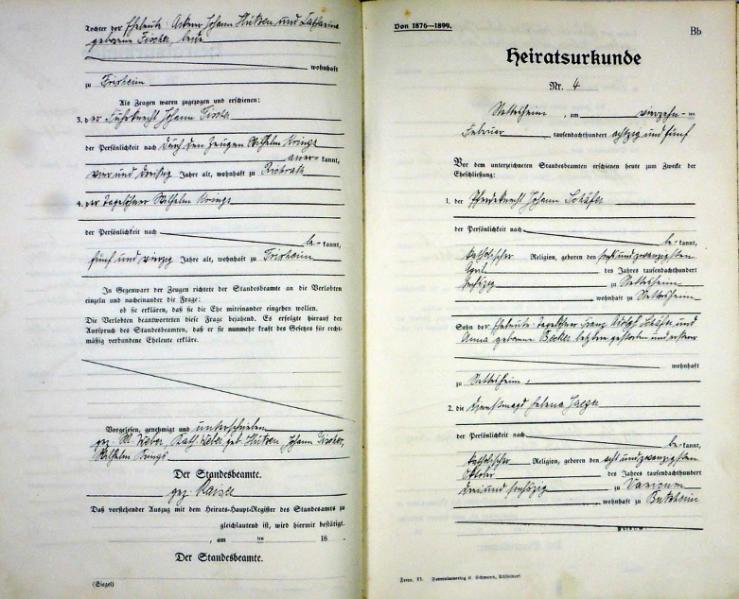 Tochter der Eheleute, Ackerer Johann Hüsken und Katharina
geborene Fischer, beide
wohnhaft
zu Frixheim
Als Zeugen waren zugezogen und erschienen:
3. der Fuhrknecht Johann Fischer
der Persönlichkeit nach durch den Zeugen Wilhelm Krings
aner= kannt,
vier und dreißig Jahre alt, wohnhaft zu
4. der Tagelöhner Wilhelm Krings
der Persönlichkeit nach
be= kannt,
fünf und vierzig Jahre alt, wohnhaft zu Frixheim
In Gegenwart der Zeugen richtete der Standesbeamte an die Verlobten
einzeln und nacheinander die Frage:
ob sie erklären, daß sie die Ehe miteinander eingehen wollen.
Die Verlobten beantworteten diese Frage bejahend. Es erfolgte hierauf der
Ausspruch des Standesbeamten, daß er sie nunmehr kraft des Gesetzes für recht=
mäßig verbundene Eheleute erkläre.
Vorgelesen, genehmigt und unterschrieben
gez. M. Weber, Kath. Weber geb. Hüsken, Johann Fischer,
Wilhelm Krings
Der Standesbeamte.
gez. Kaiser
Daß vorstehender Auszug mit dem Heirats-Haupt-Register des Standesamts zu
gleichlautend ist, wird hiermit bestätigt.
, am ten 18
Der Standesbeamte.
(Siegel)
Von 1876—1899.
Bb
Heiratsurkunde
Nr. 4
Nettesheim, am vierzehn=
Februar tausendachthundert achtzig und fünf
Vor dem unterzeichneten Standesbeamten erschienen heute zum Zwecke der
Eheschließung:
1. der Pferdeknecht Johann Schäfer
der Persönlichkeit nach
be= kannt,
katholischer Religion, geboren den sechsundzwanzigsten
April des Jahres tausendachthundert
sechzig zu Nettesheim
wohnhaft zu Nettesheim
Sohn der Eheleute Tagelöhner Franz Adolph Schäfer und
Anna geborene Becker, letztere gestorben und ersterer
wohnhaft
zu Nettesheim,
2. die Dienstmagd Helena Jaeger
der Persönlichkeit nach
be= kannt,
katholischer Religion, geboren den achtundzwanzigsten
Oktober des Jahres tausendachthundert
zu
wohnhaft zu Butzheim